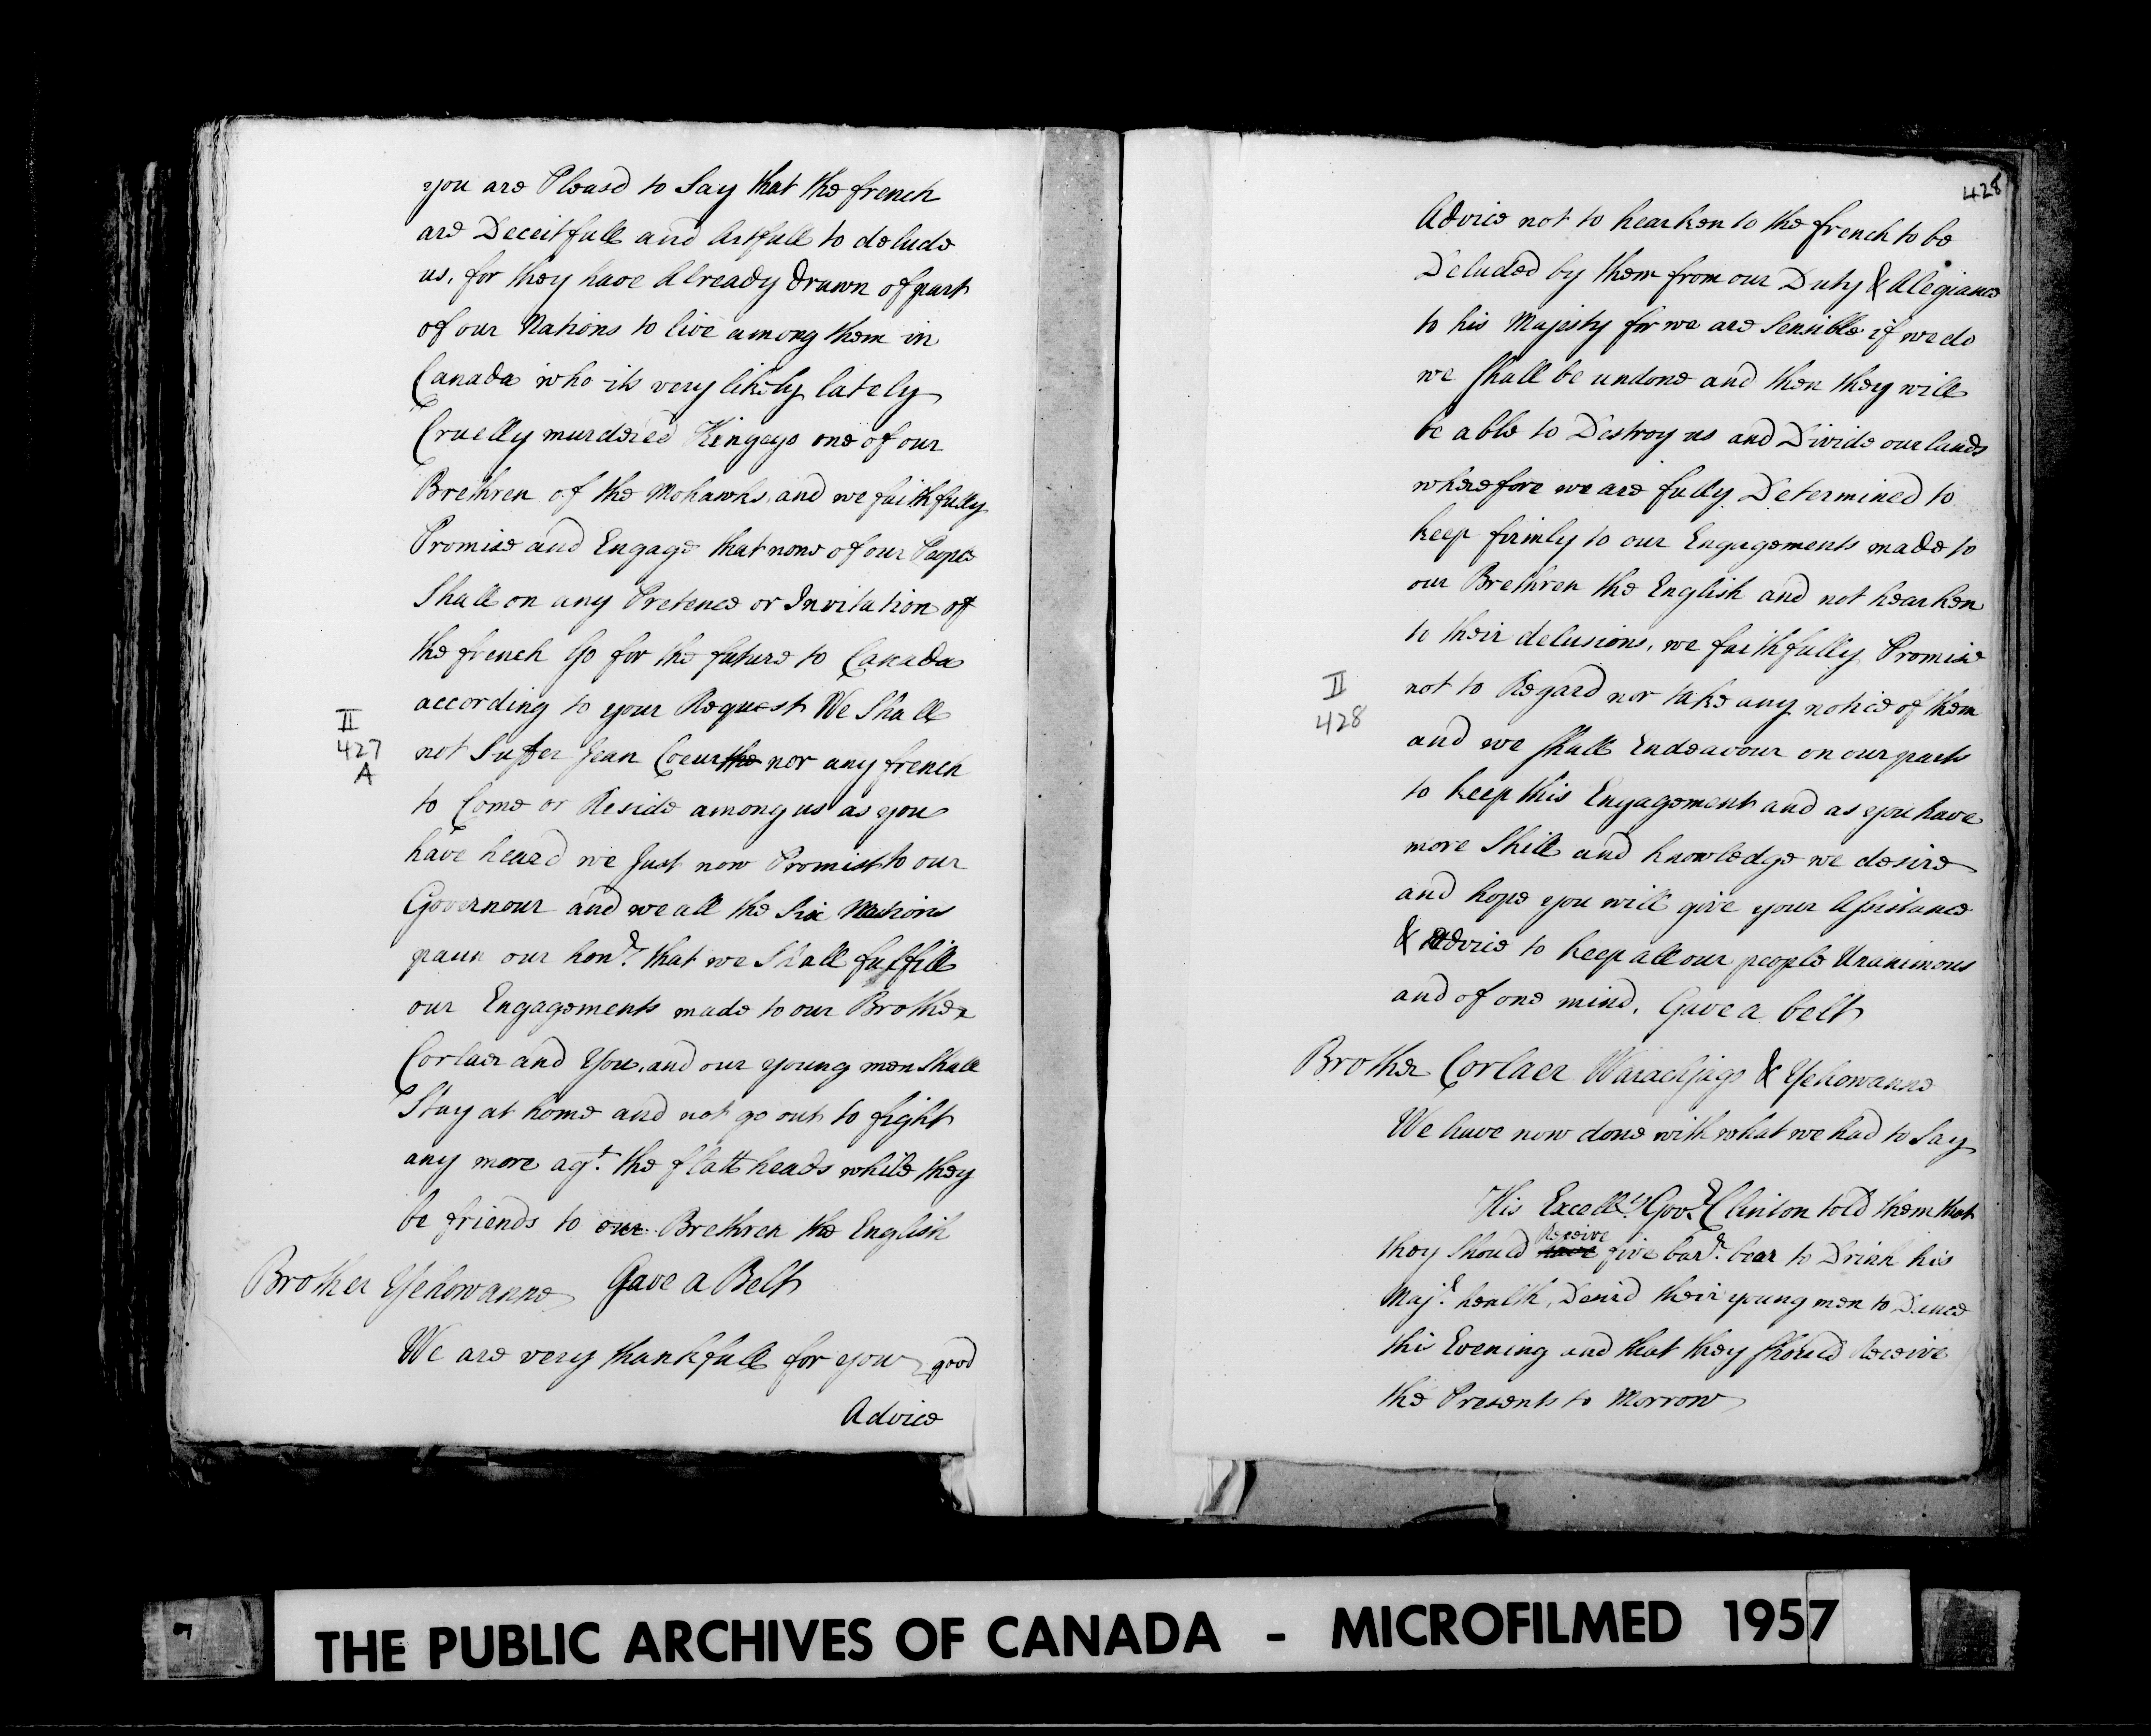 you are Pleasd to Say that the french
are Deceitfull and Artfull to delude
us, for they have Already drawn of part
of our Nations to live among them in
Canada who its very likely lately
Cruelly murdered Hingayo one of our
Brethren of the Mohawks, and we faithfully
Promise and Engage that none of our People
Shall on any Pretence or Invitation of
the french Go for the future to Canada
according to your Request We Shall
II
427
A
not Suffer Jean Coeur the nor any french
to Come or Reside among us as you
have heard we Just now Promist to our
Governour and we all the Six Nations
paun our hon.r that we Shall fulfill
our Engagements made to our Brother
Corlaer and You, and our young men Shall
Stay at home and not go out to fight
any more agt. the flatt heads while they
be friends to our Brethren the English
Brother Yehowanne Gave a Belt
We are very thankfull for your good
Advice
428
Advice not to hearken to the french to be
Deluded by them from our Duty & Alegiance
to his Majesty for we are Sensible if we do
we Shall be undone and then they will
be able to Destroy us and Divide our lands
wherefore we are fully Determined to
keep firmly to our Engagements made to
our Brethren the English and not hearken
to their delusions, we faithfully Promise
II
428
not to Regard nor take any notice of them
and we Shall Endeavour on our parts
to keep this Engagement and as you have
more Skill and knowledge we desire
and hope you will give your Assistance
& Advice to keep all our people Unanimous
and of one mind. Gave a belt
Brother Corlaer Warachjago & Yehowanne
We have now done with what we had to Say
His Excell.cy Gov.r Clinton told them that
they Should have Receive five bar.r bear to Drink his
Maj.s health, Desird their young men to Dance
this Evening and that they Should Receive
the Presents to Morrow
THE PUBLIC ARCHIVES OF CANADA - MICROFILMED 1957